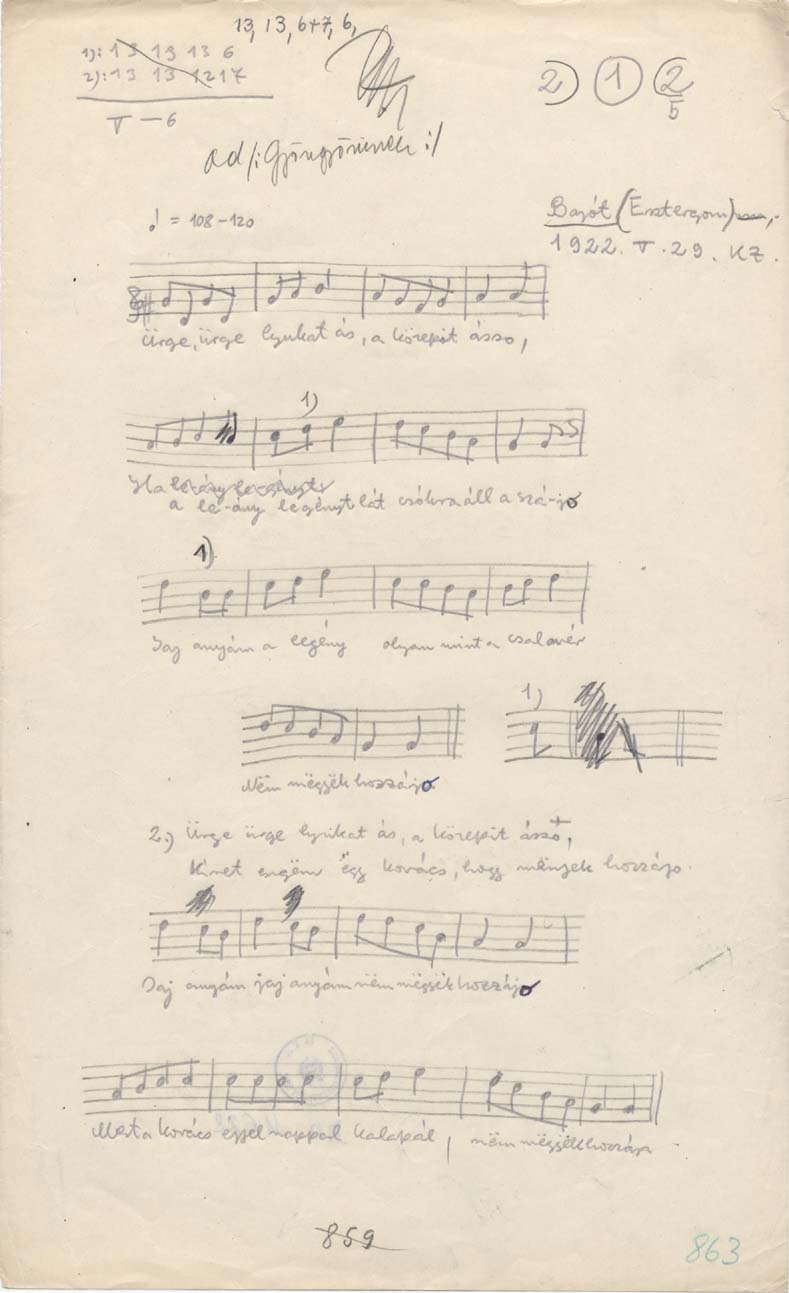 13, 13, 6+7, 6,
1): 13 13 13 6
2): 13 13 1217
V — 6
2) 1 2
5
ad /: Gyöngyösinek :/
♩ = 108-120
Bajót (Esztergom)
1922. V. 29. KZ.
Ürge, ürge lyukat ás, a közepit ásso,
1)
Ha
a le-ány legényt lát csókra áll a szá-jo
1)
Jaj anyám a legény olyan mint a csalavér
1)
Nëm mëgyëk hozzájo
2.) Ürge ürge lyukat ás, a közepit ászo,
Kinet engëm ëgy kovács, hogy mënyek hozzájo.
Jaj anyám jaj anyám nëm mëgyëk hozzájo
Mert a kovács éjjel nappal kalapál, nëm mëgyëk hozzájo
859
863